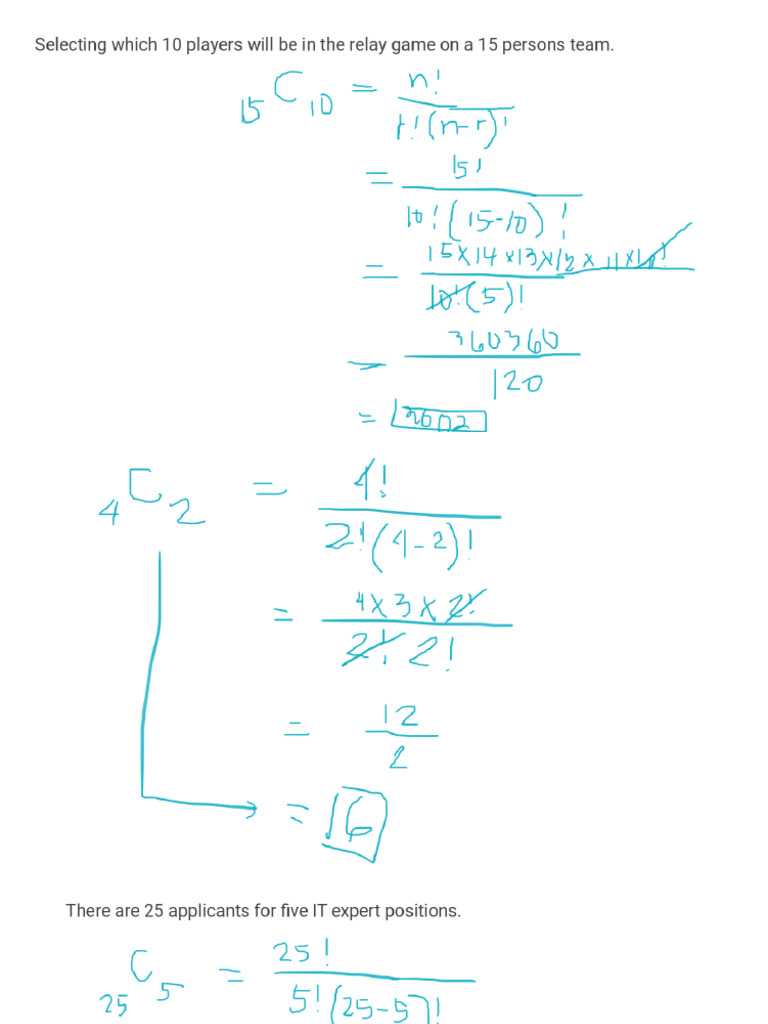 Selecting which 10 players will be in the relay game on a 15 persons team.
15C10 = n! / r!(n-r)!
= 15! / 10!(15-10)!
= 15x14x13x12x11x10! / 10!(5)!
= 360360 / 120
= 3002
4C2 = 4! / 2!(4-2)!
= 4x3x2! / 2!2!
= 12 / 2
= 6
There are 25 applicants for five IT expert positions.
25C5 = 25! / 5!(25-5)!